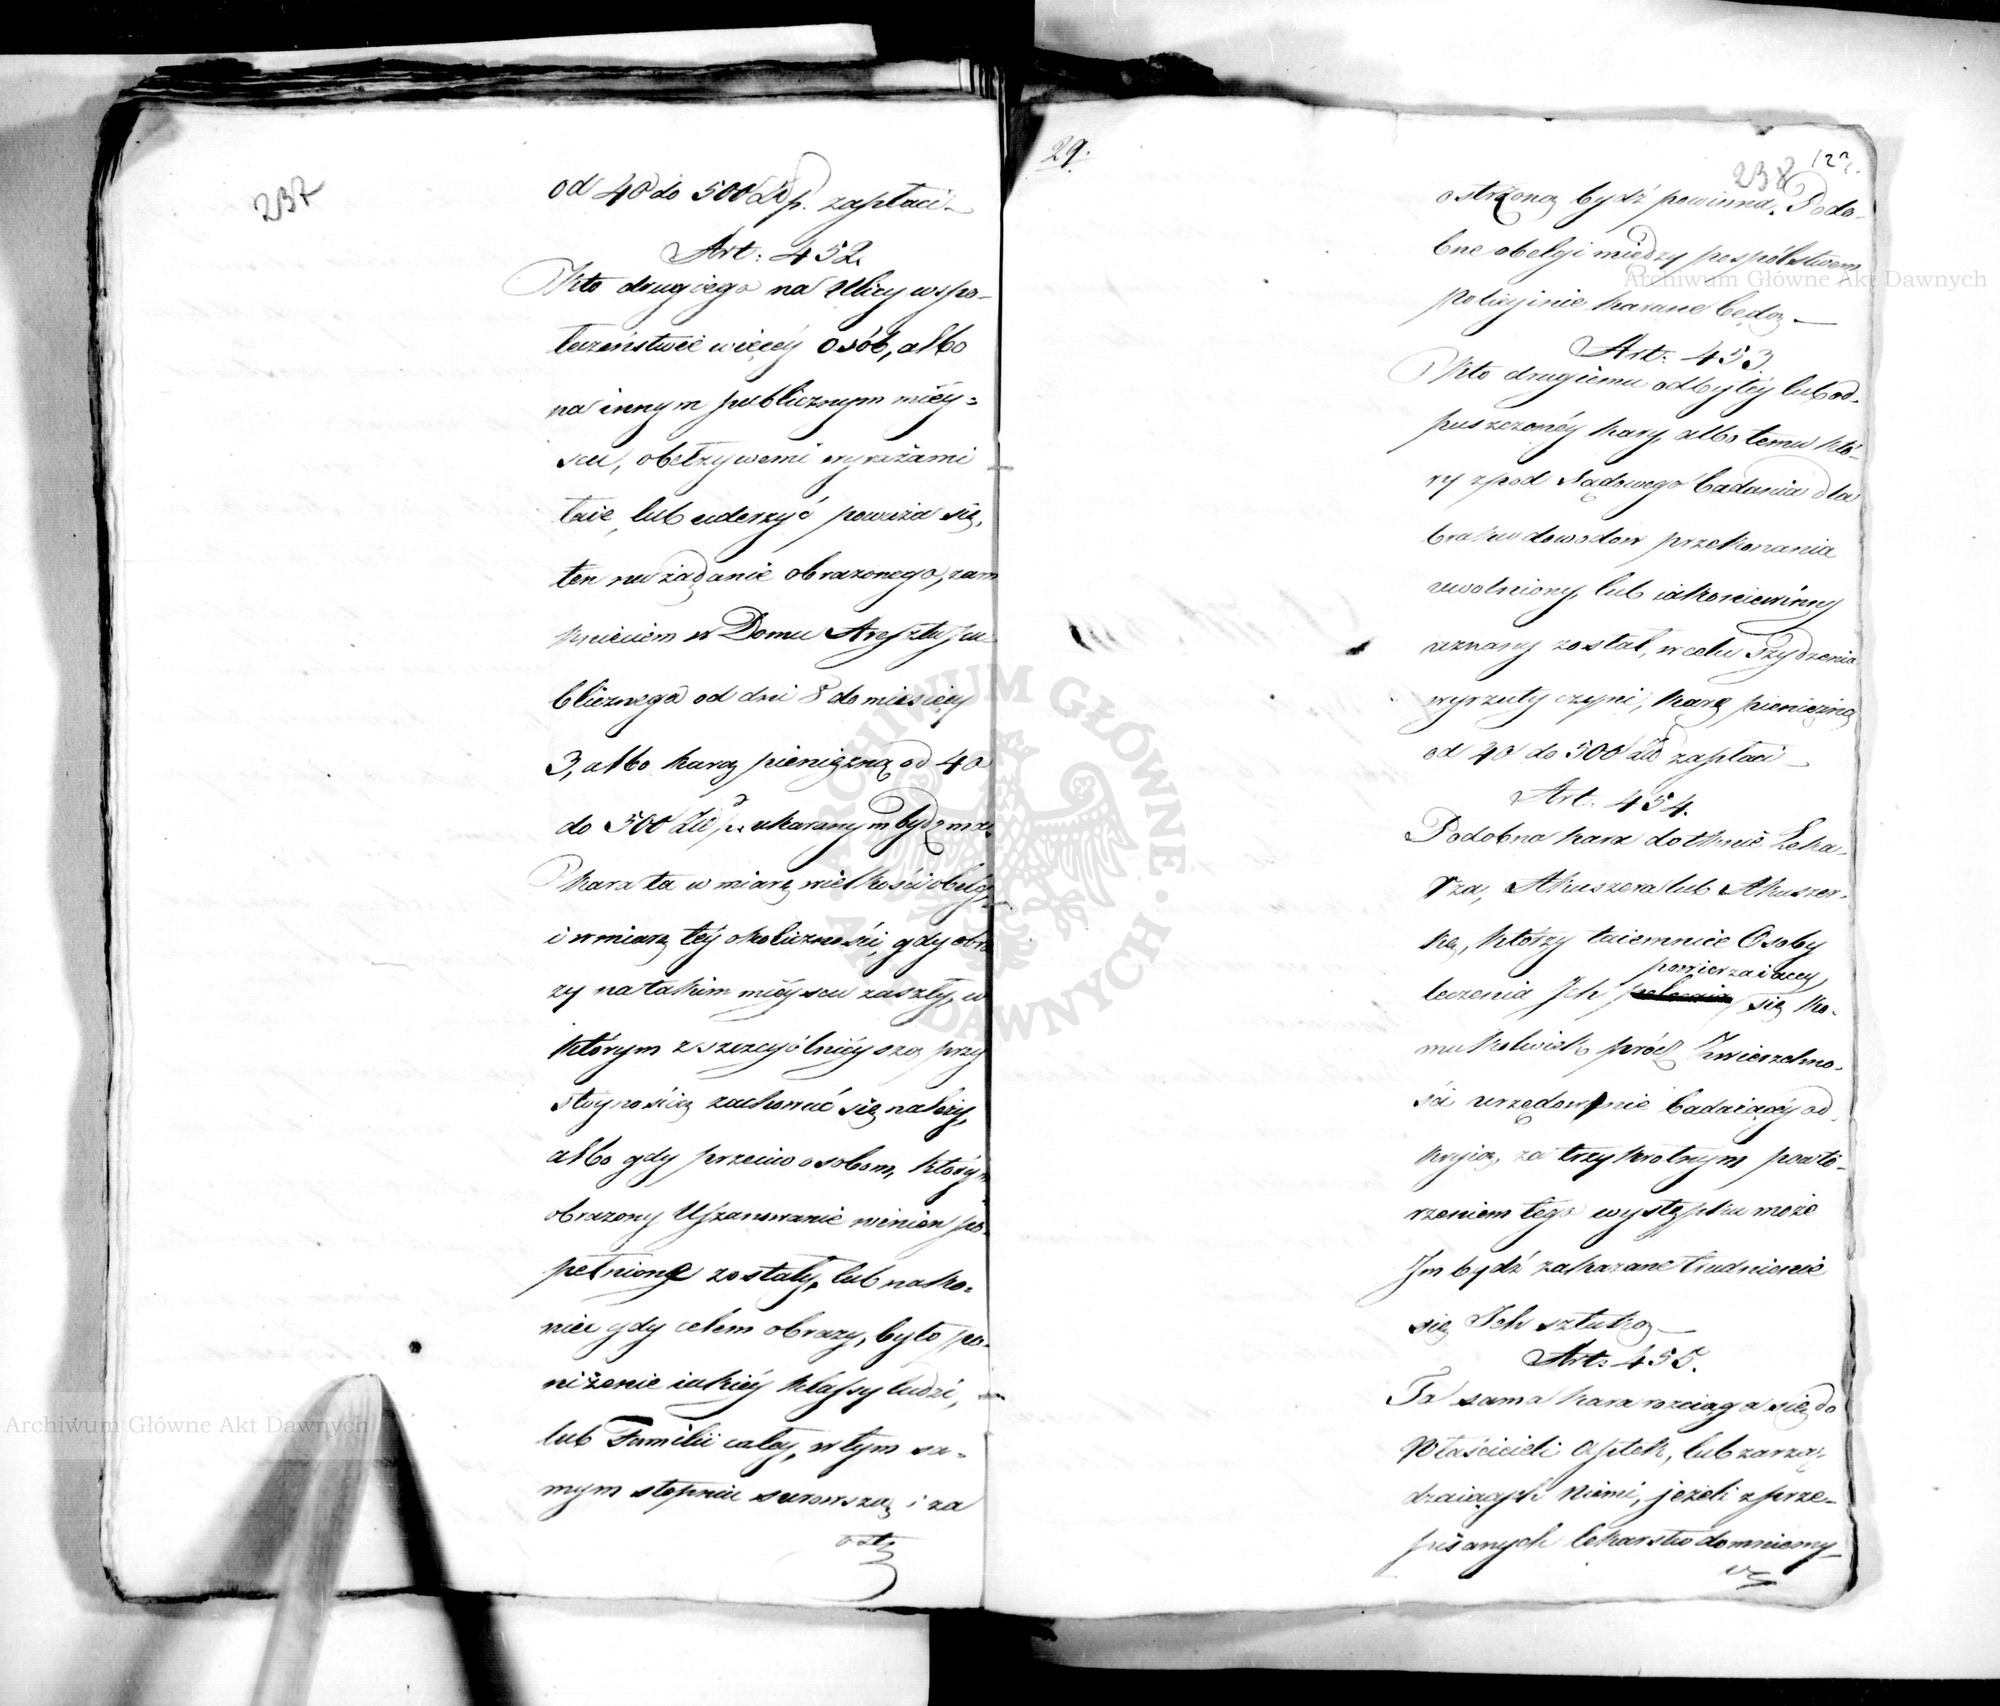 237
od 40 do 500 Złp. zapłaci
Art: 452.
Kto drugiego na Ulicy wspo-
łeczeństwie więcéy osób, albo
na innym publicznym miéy=
scu, obelżywemi wyrażami
łaie, lub uderzyć poważa się,
ten na żądanie obrażonego, zam
knięciem w Domu Aresztu pu
blicznego od dni 8 do miesięcy
3, albo karą pieniężną od 40
do 500 Złp. ukaranym bydź ma
kara ta w miarę wielkości obelgi
i w miarę téy okoliczności, gdy obra
zy na takim miéyscu zaszły, w
którym z szczególnieyszą przy
stoynością zachować się należy,
albo gdy przeciw osobom, którym
obrażony Uszanowanie winien po-
pełnione zostały, lub nako-
niec gdy celem obrazy, było po-
niżenie iakiéy klassy ludzi,
lub Familii całey, w tym sa-
mym stopniu surowszą i za
ostrz
29.
238
127.
ostrzoną bydź powinna. Podo-
bne obelgi między pospólstwem
policyinie karane będą
Art: 453
Kto drugiemu odbytéy lub od-
puszczonéy kary, albo temu któ-
ry z pod Sądowego badania dla
braku dowodów przekonania
uwolniony, lub iako niewinny
uznany został, w celu szydzenia
wyrzuty czyni, karę pieniężną
od 40 do 500 Zł zapłaci
Art. 454.
Podobna kara dotknie Leka-
rza, Akuszera lub Akuszer-
kę, którzy taiemnice Osoby
powierzaiącey
leczenia Ich się ko-
mukolwiek prócz Zwierzchno-
ści urzędownie badaiącéy od-
kryią, za trzykrotnym powtó-
rzeniem tego występku może
Im bydź zakazane trudnienie
się Ich sztuką
Art: 455.
Ta sama kara rozciąga się do
Właścicieli Aptek, lub zarzą-
dzaiących niemi, jeżeli z prze-
pisanych lekarstw domniemy-